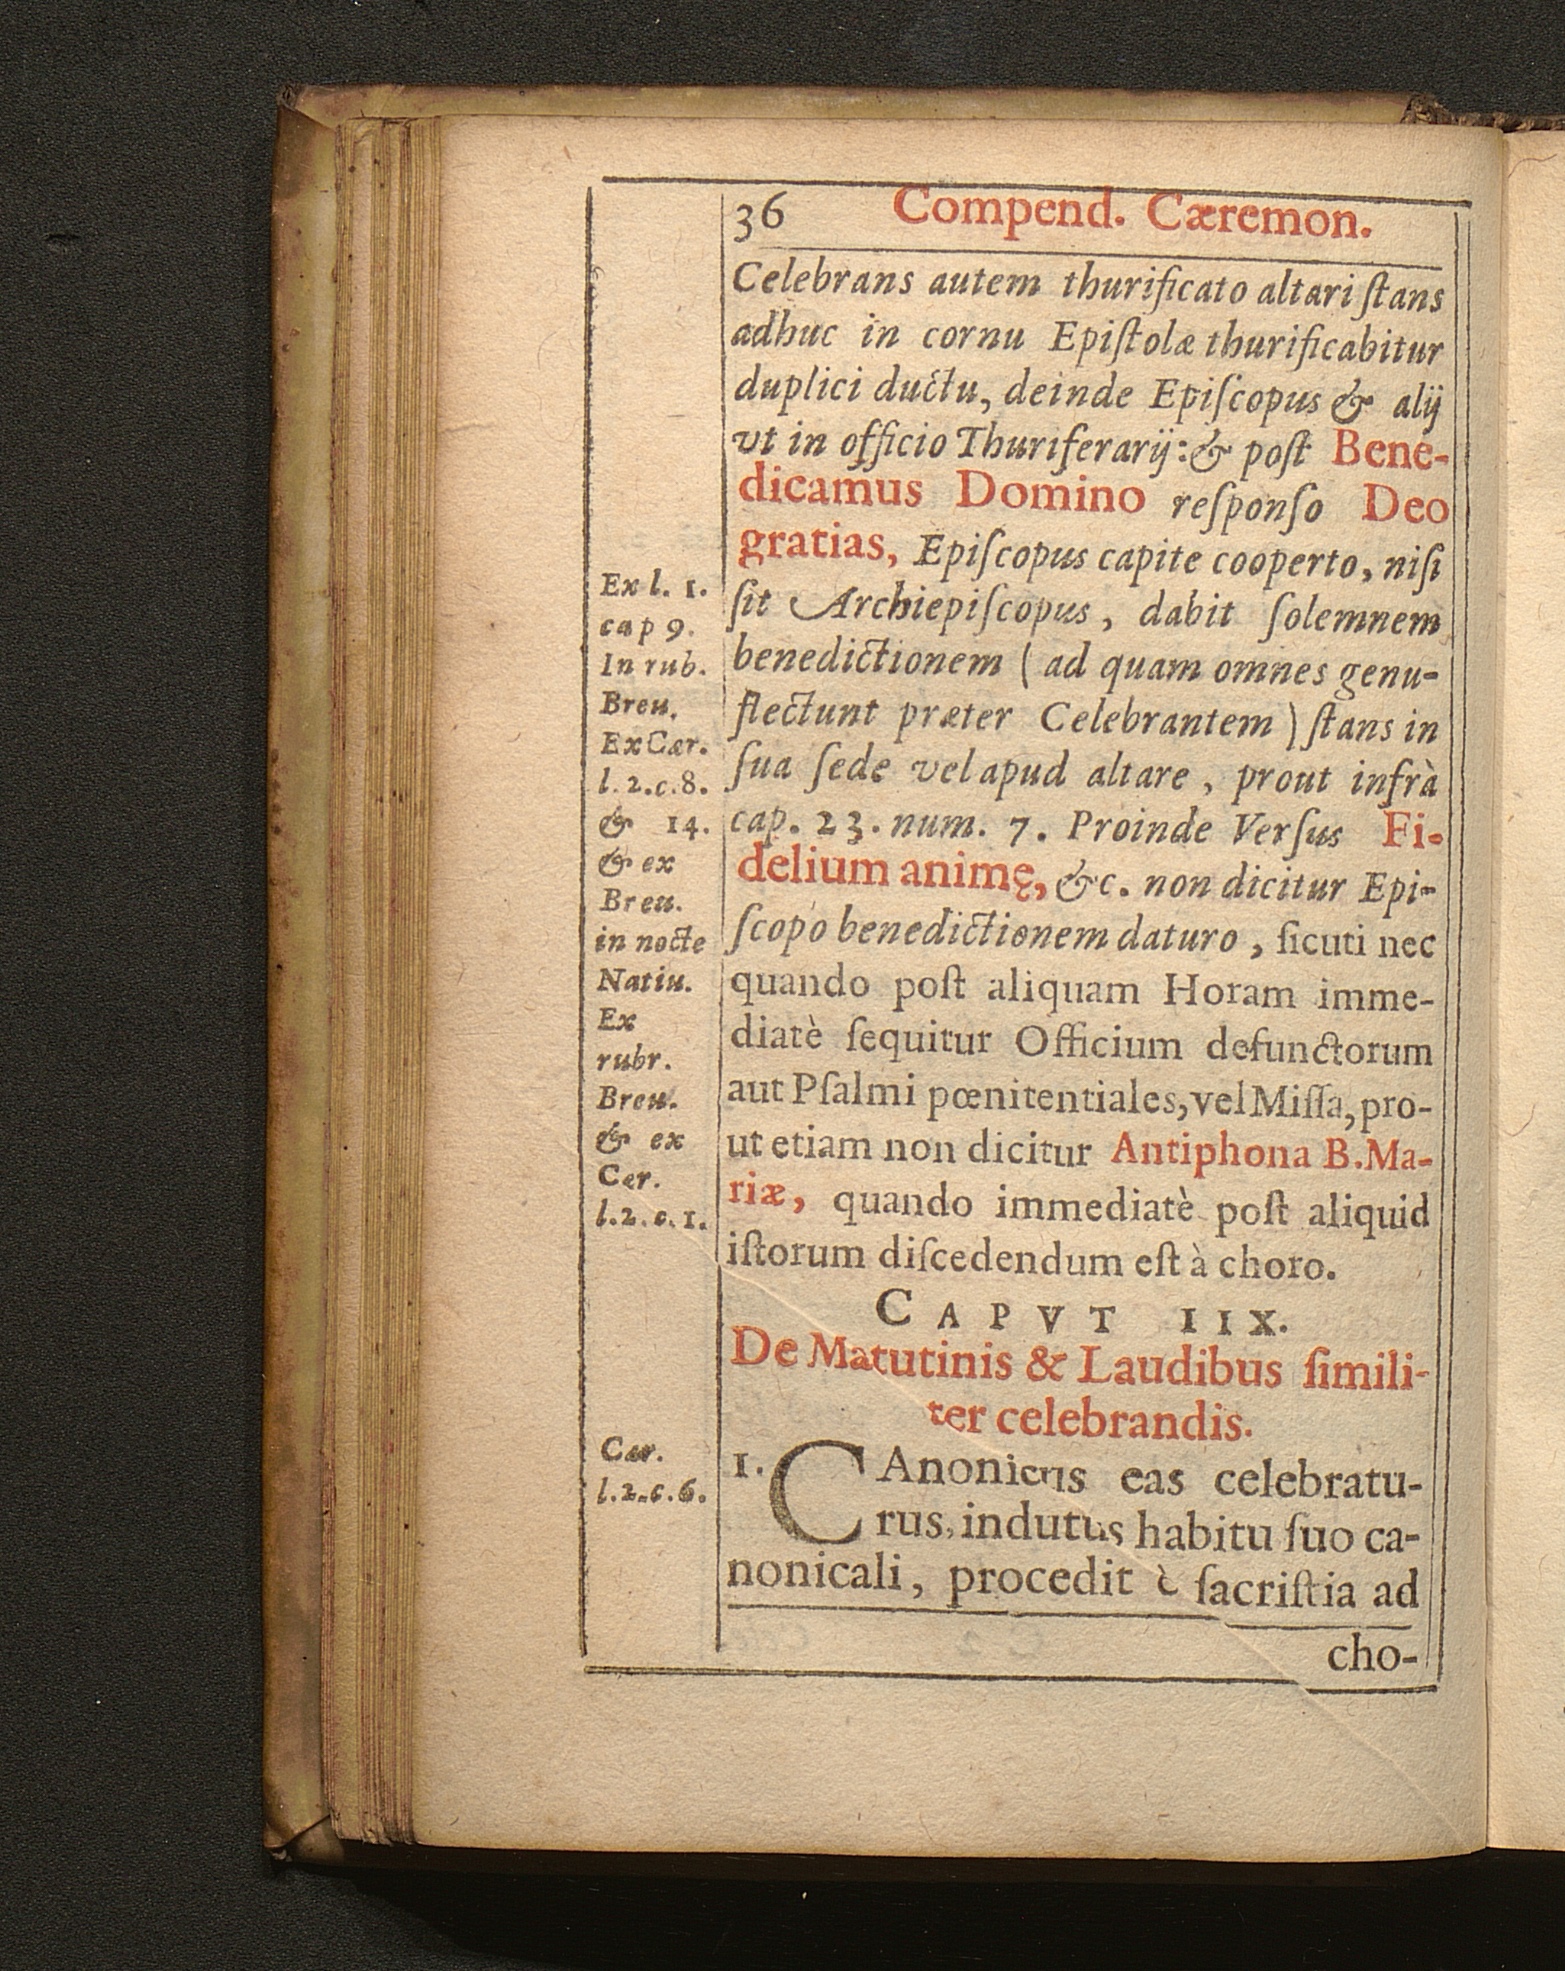 36 Compend. Cæremon.
Celebrans autem thurificato altari ſtans
adhuc in cornu Epiſtolæ thurificabitur
duplici ductu, deinde Epiſcopus & alij
vt in officio Thuriferarij: & poſt Bene-
dicamus Domino reſponſo Deo
gratias, Epiſcopus capite cooperto, niſi
ſit Archiepiſcopus, dabit ſolemnem
benedictionem ( ad quam omnes genu-
flectunt præter Celebrantem ) ſtans in
ſua ſede vel apud altare, prout infrà
cap. 23. num. 7. Proinde Verſus Fi-
delium animę, &c. non dicitur Epi-
ſcopo benedictionem daturo, ſicuti nec
quando poſt aliquam Horam imme-
diatè ſequitur Officium defunctorum
aut Pſalmi pœnitentiales, vel Miſſa, pro-
ut etiam non dicitur Antiphona B. Ma-
riæ, quando immediatè poſt aliquid
iſtorum diſcedendum eſt à choro.
Ex l. 1.
cap 9.
In rub.
Breu.
Ex Cær.
l. 2. c. 8.
& 14.
& ex
Breu.
in nocte
Natiu.
Ex
rubr.
Breu.
& ex
Cær.
l. 2. c. 1.
CAPVT IIX.
De Matutinis & Laudibus ſimili-
ter celebrandis.
Cær.
l. 2. c. 6.
1. CAnonicus eas celebratu-
rus, indutus habitu ſuo ca-
nonicali, procedit è ſacriſtia ad
cho-